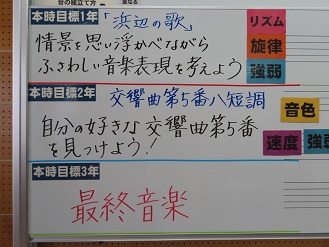 音の組立て方
重なる
本時目標1年 「浜辺の歌」
情景を思い浮かべながら
ふさわしい音楽表現を考えよう
リズム
旋律
強弱
本時目標2年 交響曲第5番ハ短調
自分の好きな交響曲第5番
を見つけよう!
音色
速度
強弱
本時目標3年
最終音楽